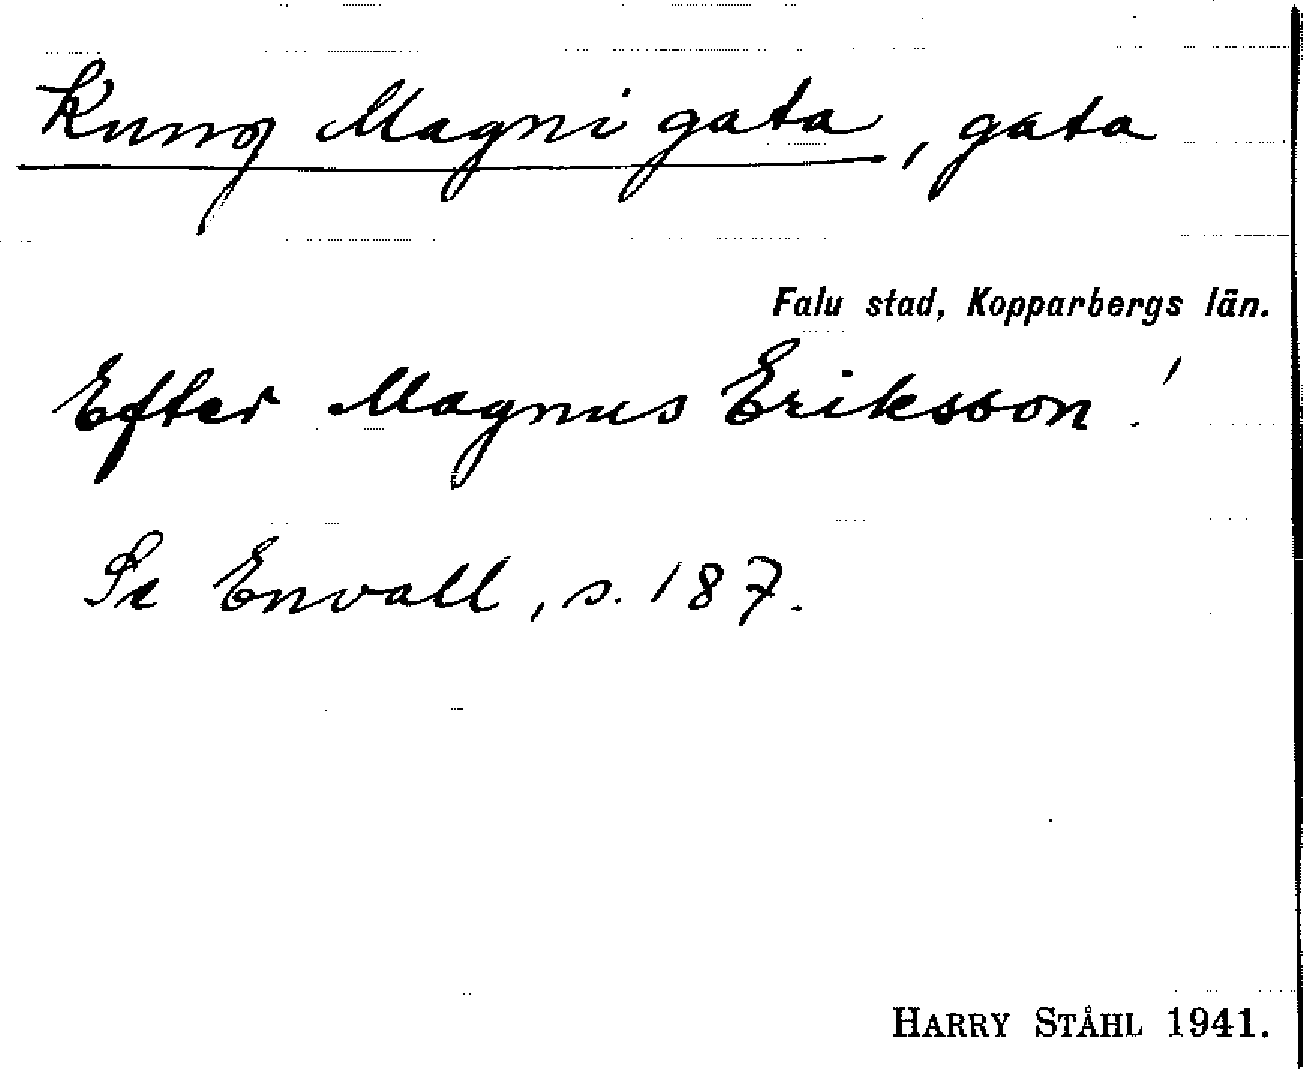 Kung Magni gata, gata
Falu stad, Kopparbergs län.
Efter Magnus Eriksson!
Se Envall, s. 187.
HARRY STÅHL 1941.